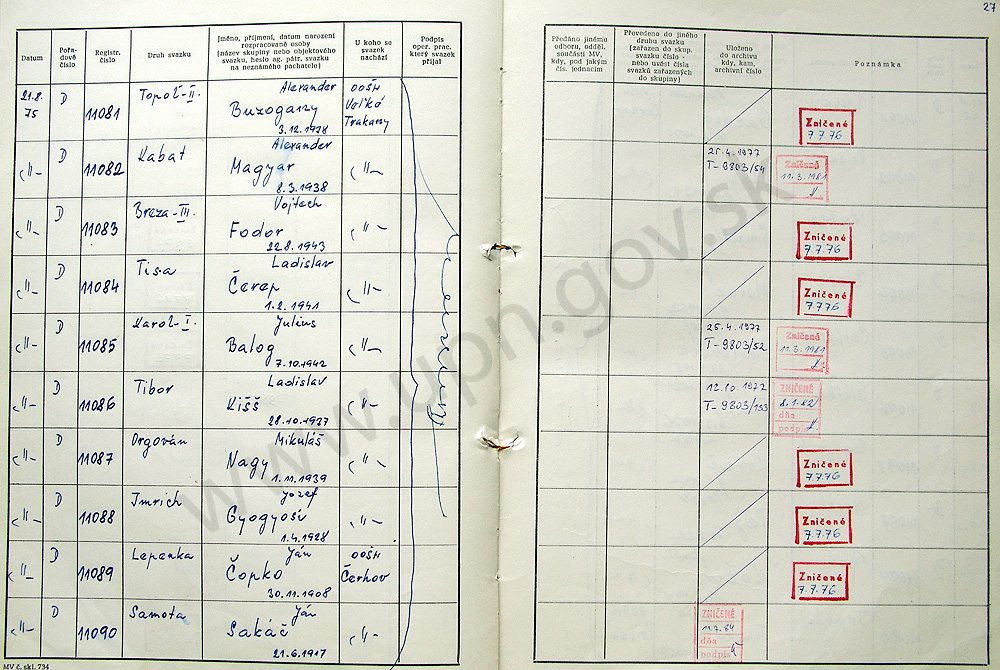 27
Datum
Pořa-
dové
číslo
Registr.
číslo
Druh svazku
Jméno, příjmení, datum narození
rozpracované osoby
(název skupiny nebo objektového
svazku, heslo ag. pátr. svazku
na neznámého pachatele)
U koho se
svazek
nachází
Podpis
oper. prac.
který svazek
přijal
Předáno jinému
odboru, odděl.
součásti MV,
kdy, pod jakým
čís. jednacím
Převedeno do jiného
druhu svazku
(zařazen do skup.
svazku číslo -
nebo uvést čísla
svazků zařazených
do skupiny)
Uloženo
do archivu
kdy, kam,
archivní číslo
Poznámka
21.8.
75
D
11081
Topoľ-II.
Alexander
Buzogany
3.12.1978
OOŠH
Veľké
Trakany
Zničené
7.7.76
-"-
D
11082
Kabat
Alexander
Magyar
8.3.1938
-"-
25.4.1977
T-9803/54
Zničené
11.3.1981
-"-
D
11083
Breza-III.
Vojtech
Fodor
22.8.1943
-"-
Zničené
7.7.76
-"-
D
11084
Tisa
Ladislav
Čerep
1.2.1941
-"-
Zničené
7.7.76
-"-
D
11085
Karol-I.
Július
Balog
7.10.1942
-"-
25.4.1977
T-9803/52
Zničené
11.3.1981
-"-
D
11086
Tibor
Ladislav
Kišš
28.10.1927
-"-
12.10.1972
T-9803/133
ZNIČENÉ
8.1.82
dňa
podpis
-"-
D
11087
Orgován
Mikuláš
Nagy
1.11.1939
-"-
Zničené
7.7.76
-"-
D
11088
Imrich
Jozef
Gyogyosi
1.4.1928
-"-
Zničené
7.7.76
-"-
D
11089
Lepenka
Ján
Čopko
30.11.1908
OOŠH
Čerhov
Zničené
7.7.76
-"-
D
11090
Samota
Ján
Sakáč
21.6.1917
-"-
ZNIČENÉ
dňa
podpis
MV č. skl. 734
www.upn.gov.sk